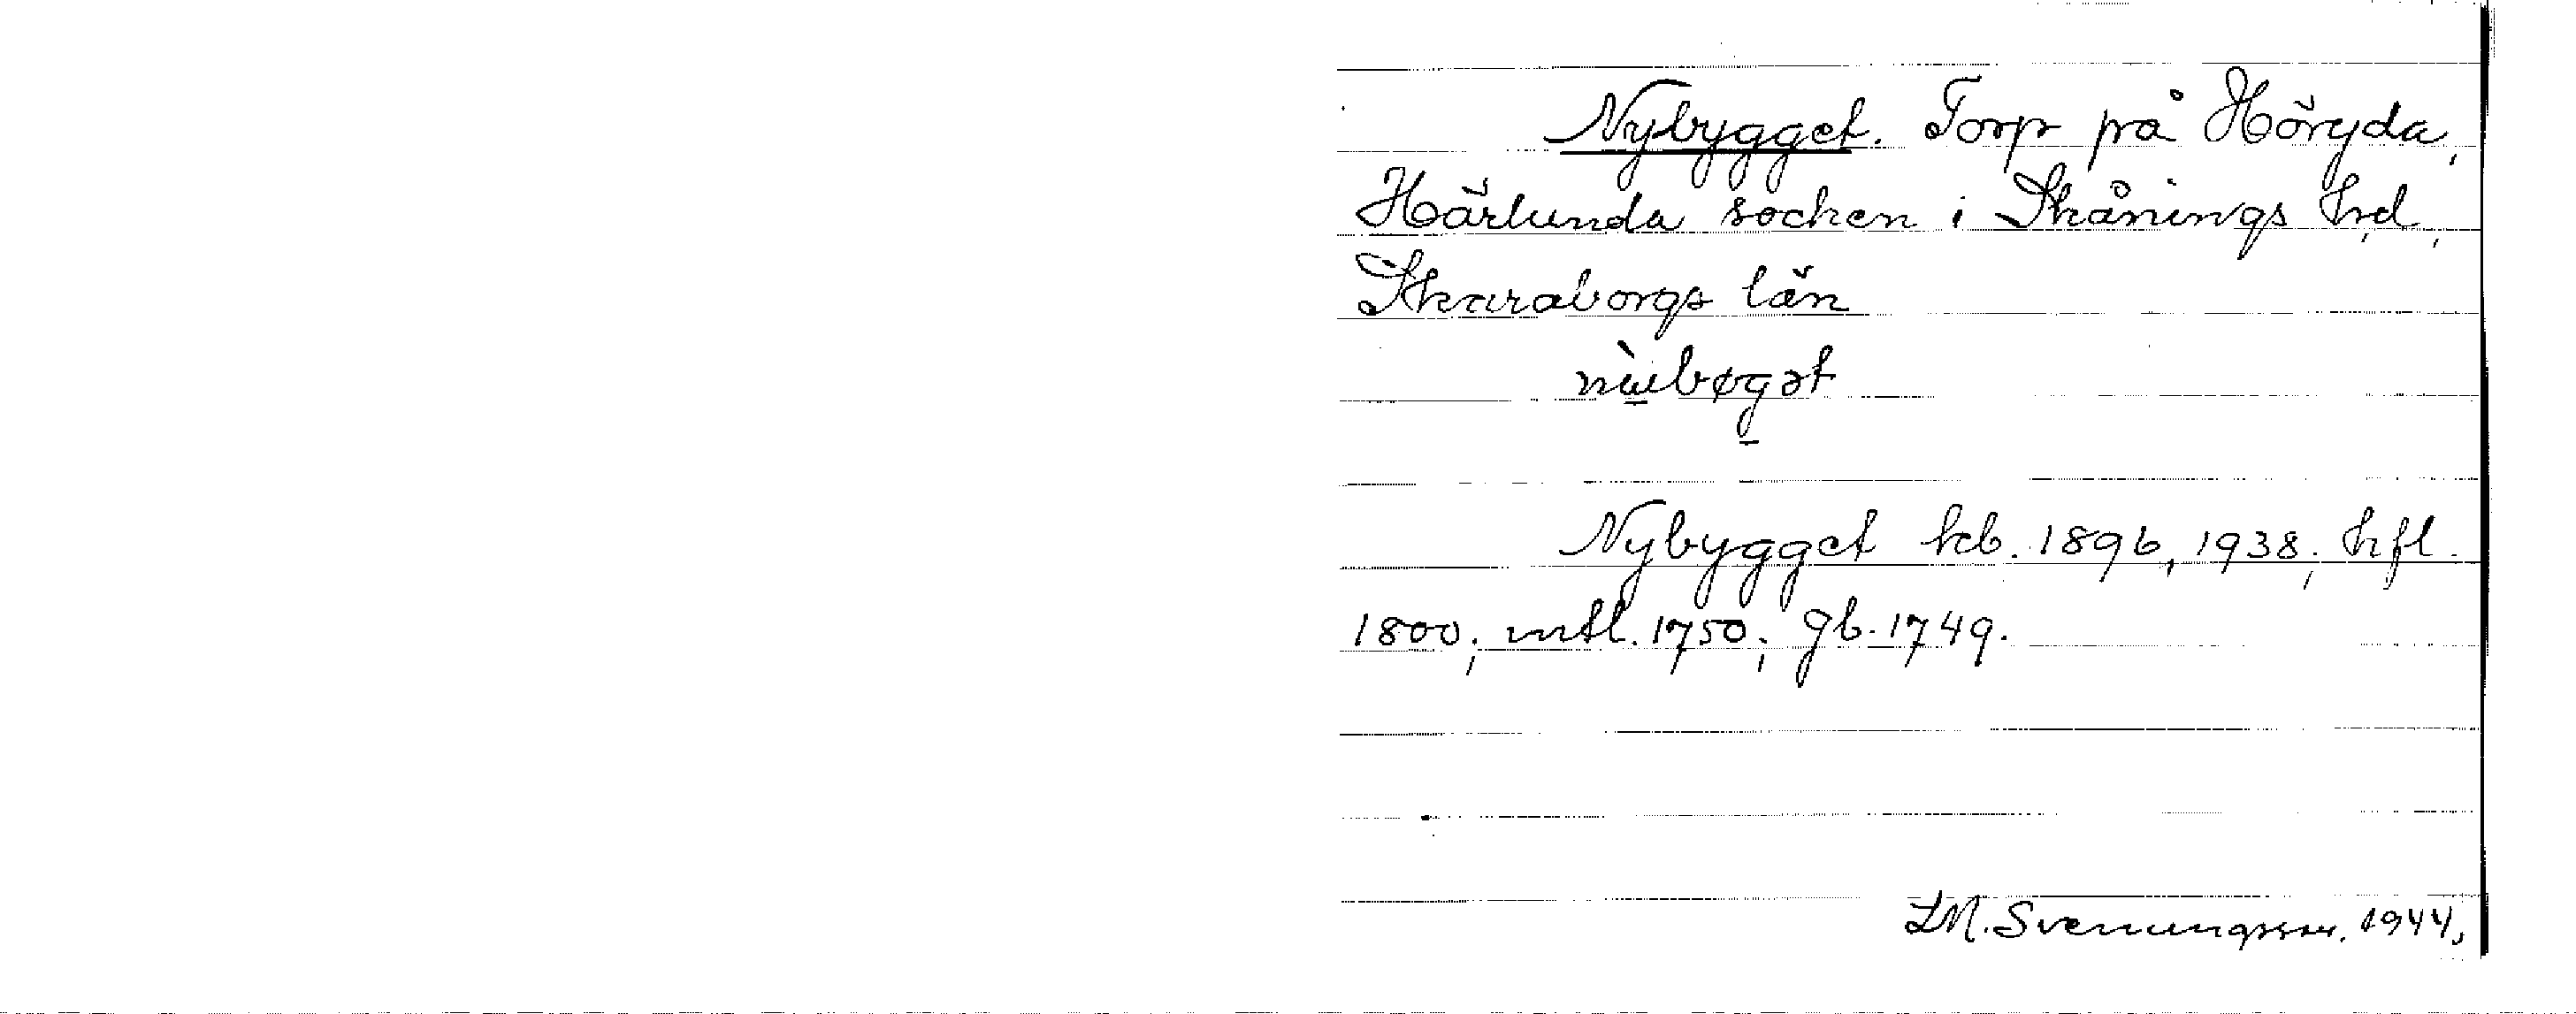 Nybygget. Torp på Höryda,
Härlunda socken i Skånings hd,
Skaraborgs län
Nybygget kb. 1896, 1938; hfl.
1800; mtl. 1750; gb. 1749.
L.M. Svenungsson. 1944.